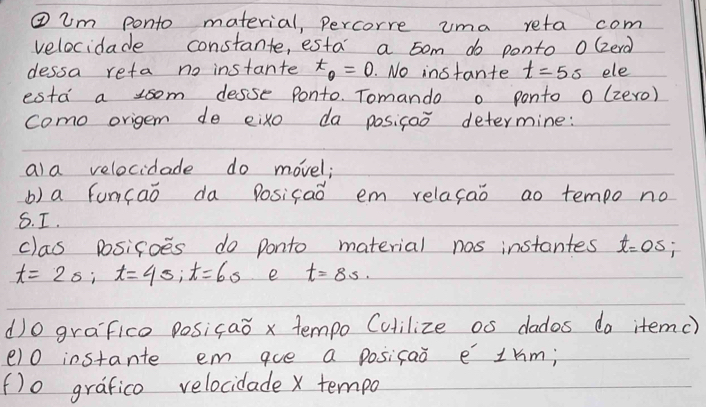 ② Um ponto material, percorre uma reta com
velocidade constante, está a 50m do ponto 0 (zero)
dessa reta no instante t₀ = 0. No instante t = 5s ele
está a 150m desse ponto. Tomando o ponto 0 (zero)
como origem de eixo da posição determine:
a) a velocidade do móvel;
b) a função da posição em relação ao tempo no
S.I.
c) as posições do ponto material nos instantes t=0s;
t= 2s; t=4s; t=6s e t=8s.
d) o gráfico posição x tempo (utilize os dados do item c)
e) o instante em que a posição é 1km;
f) o gráfico velocidade x tempo